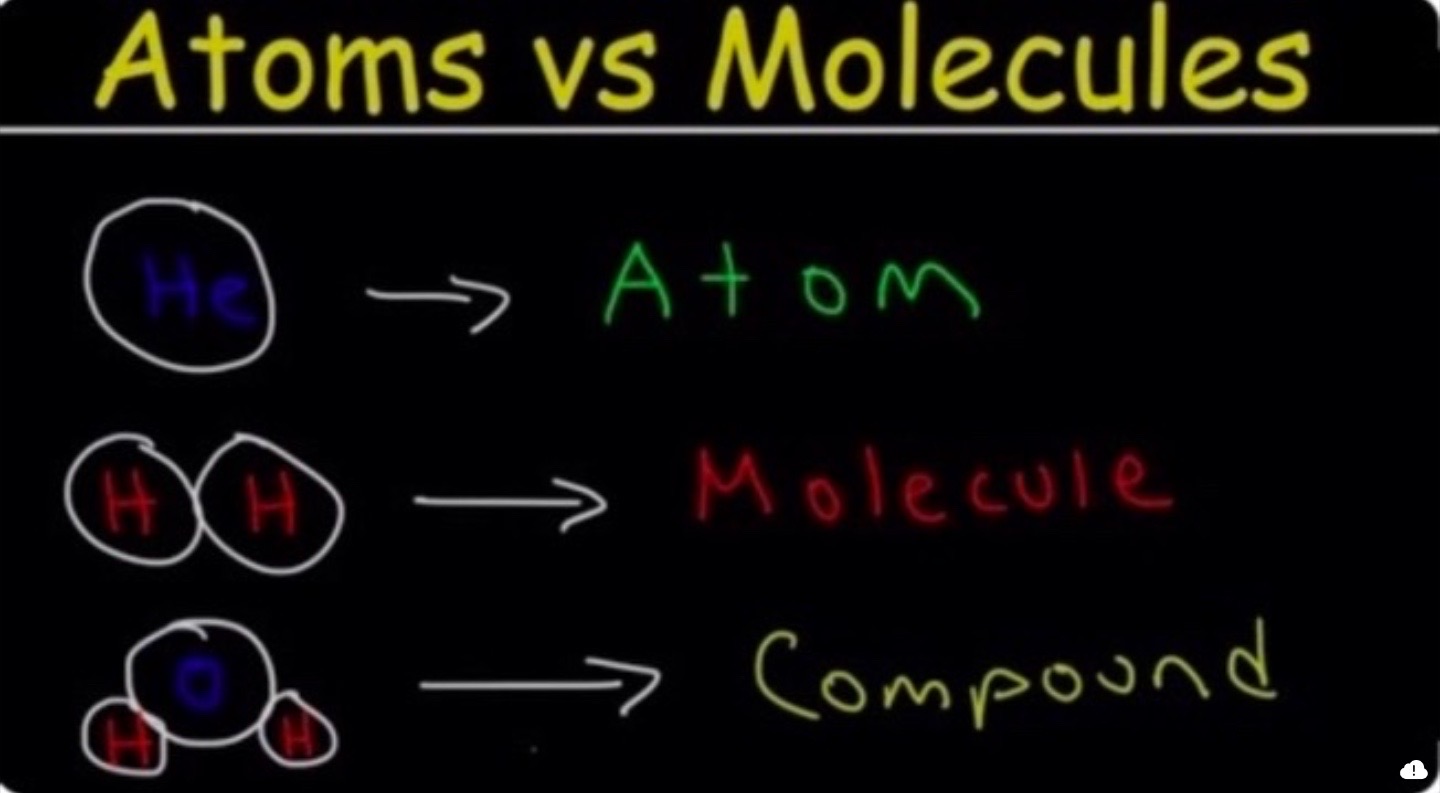 Atoms vs Molecules
He → Atom
H H → Molecule
O → Compound
H H